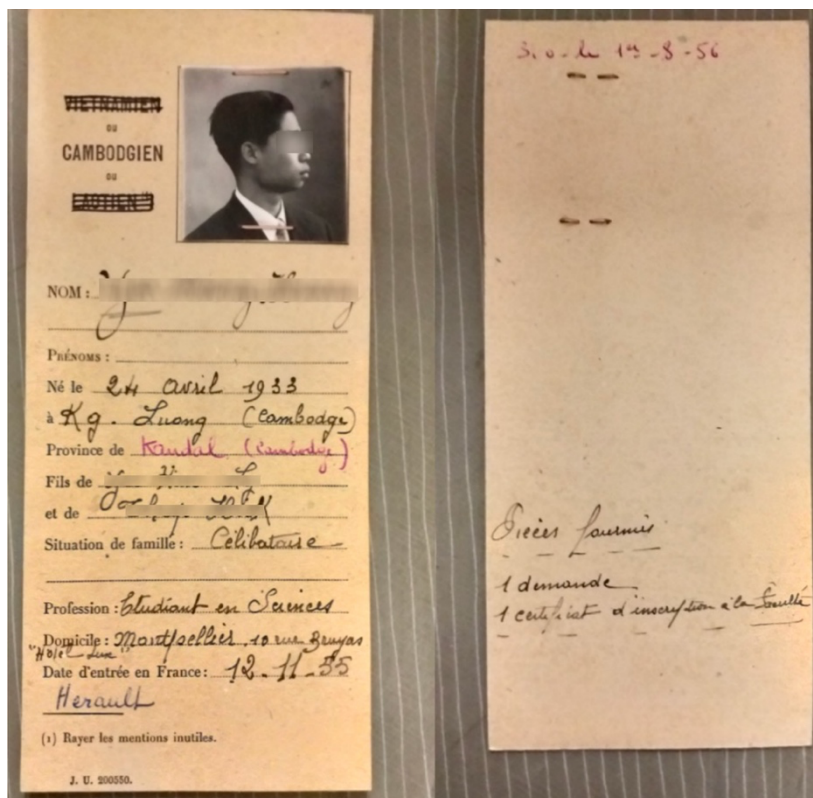 VIETNAMIEN
OU
CAMBODGIEN
OU
LAOTIEN
NOM :
PRÉNOMS :
Né le 24 avril 1933
à Kg. Luong (Cambodge)
Province de Kandal (Cambodge)
Fils de
et de
Situation de famille : Célibataire
Profession : Etudiant en Sciences
Domicile : Montpellier. 10 rue Bruyas
"Hôtel Lux"
Date d'entrée en France : 12-11-55
Herault
(1) Rayer les mentions inutiles.
J. U. 200550.
le 1er-8-56
Pièces fournies
1 demande
1 certificat d'inscription à la Faculté